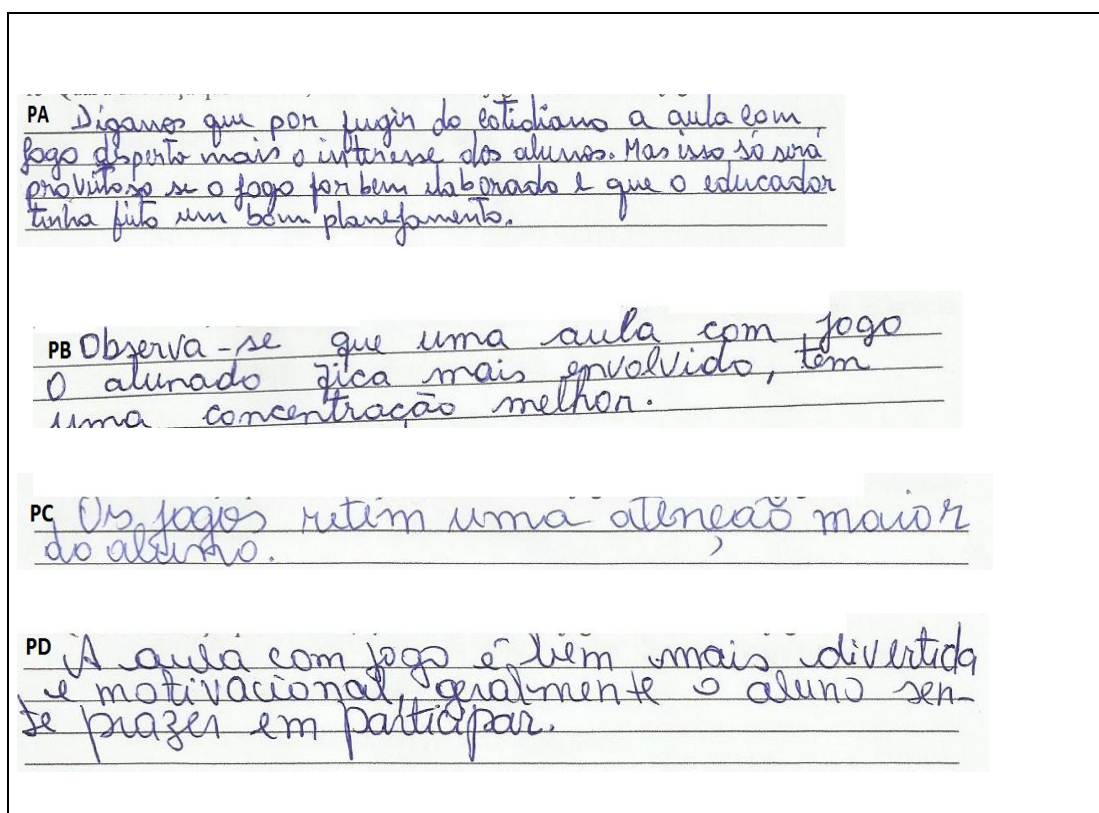 PA Digamos que por fugir do cotidiano a aula com
jogo disperta mais o interesse dos alunos. Mas isso só será
proveitoso se o jogo for bem elaborado e que o educador
tinha feito um bom planejamento.
PB Observa-se que uma aula com jogo
O alunado fica mais envolvido, tem
uma concentração melhor.
PC Os jogos retém uma atenção maior
do aluno.
PD A aula com jogo é bem mais divertida
e motivacional, geralmente o aluno sen-
te prazer em participar.